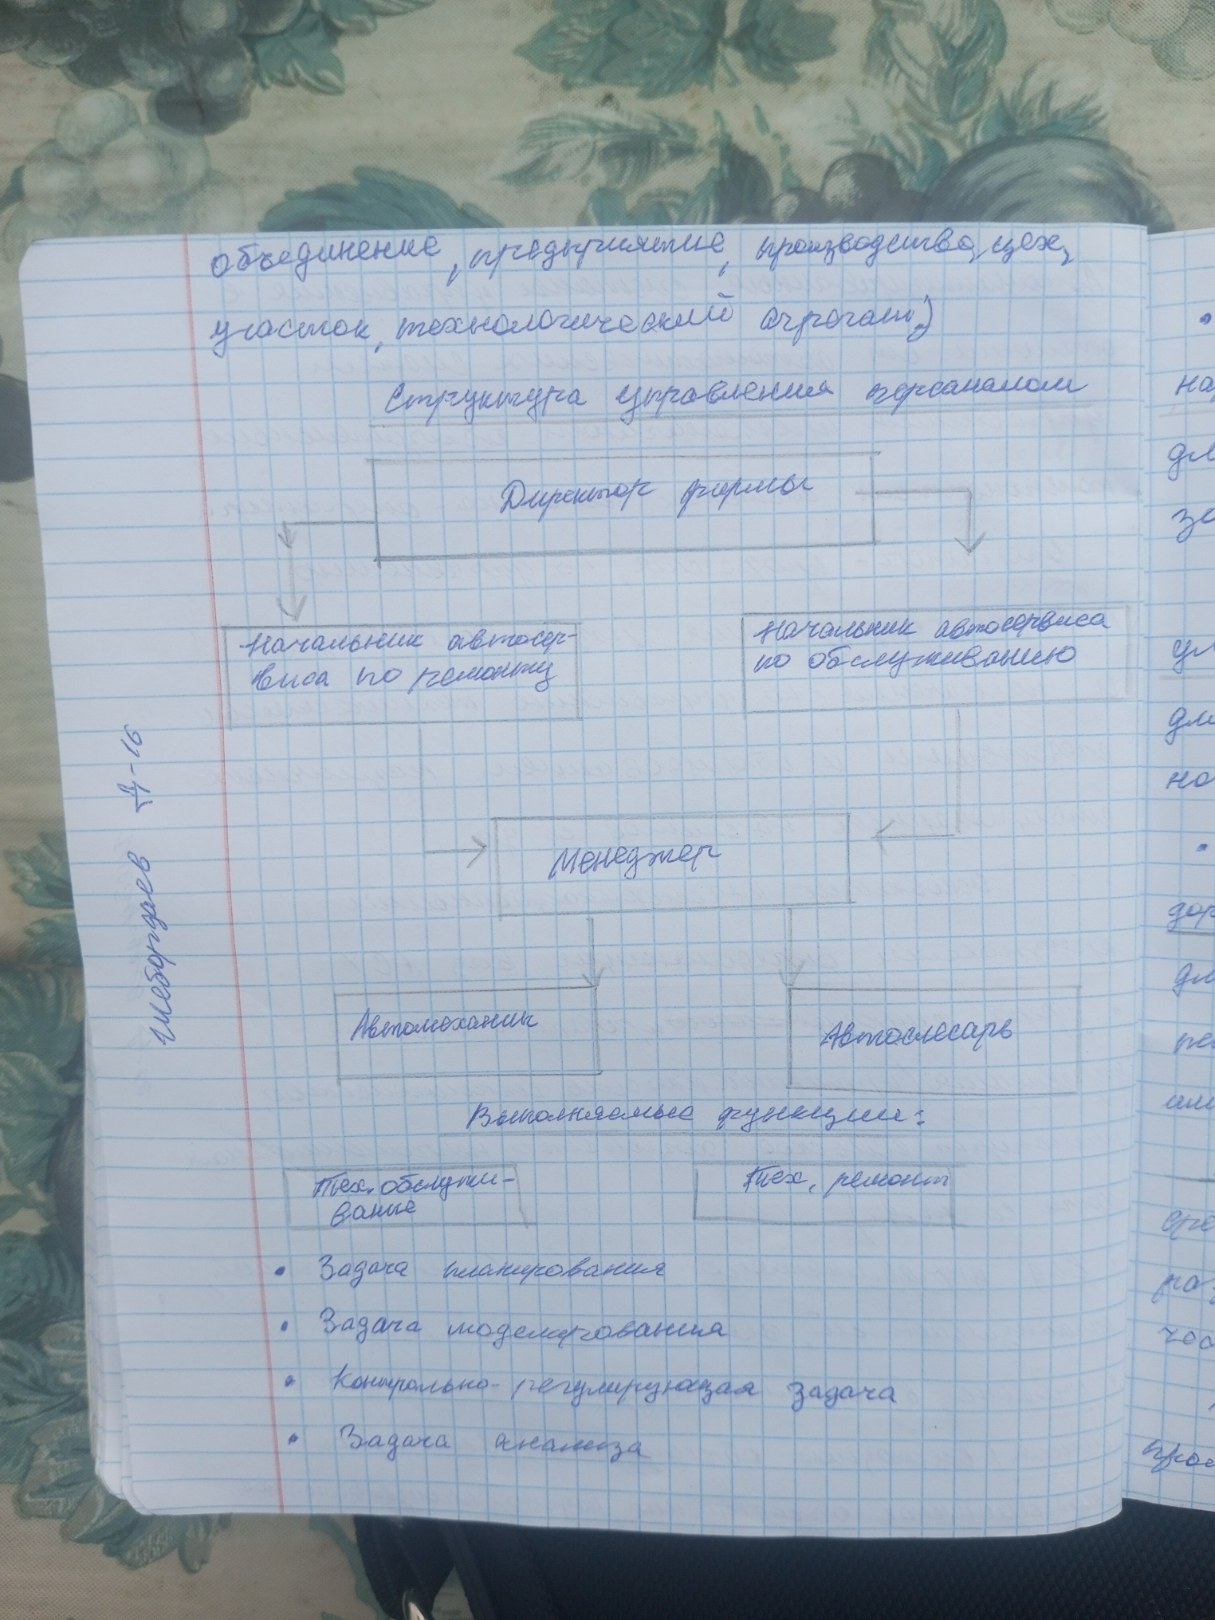 объединение, предприятие, производство, цех,
участок, технологический агрегат)
Структура управления персаналом
Директор фирмы
Начальник автосер-
виса по ремонту
Начальник автосервиса
по обслуживанию
Менеджер
Автомеханик
Автослесарь
Выполняемые функции:
Тех. обслужи-
вание
Тех. ремонт
• Задача планирования
• Задача моделирования
• Контрольно-регулирующая задача
• Задача анализа
-16